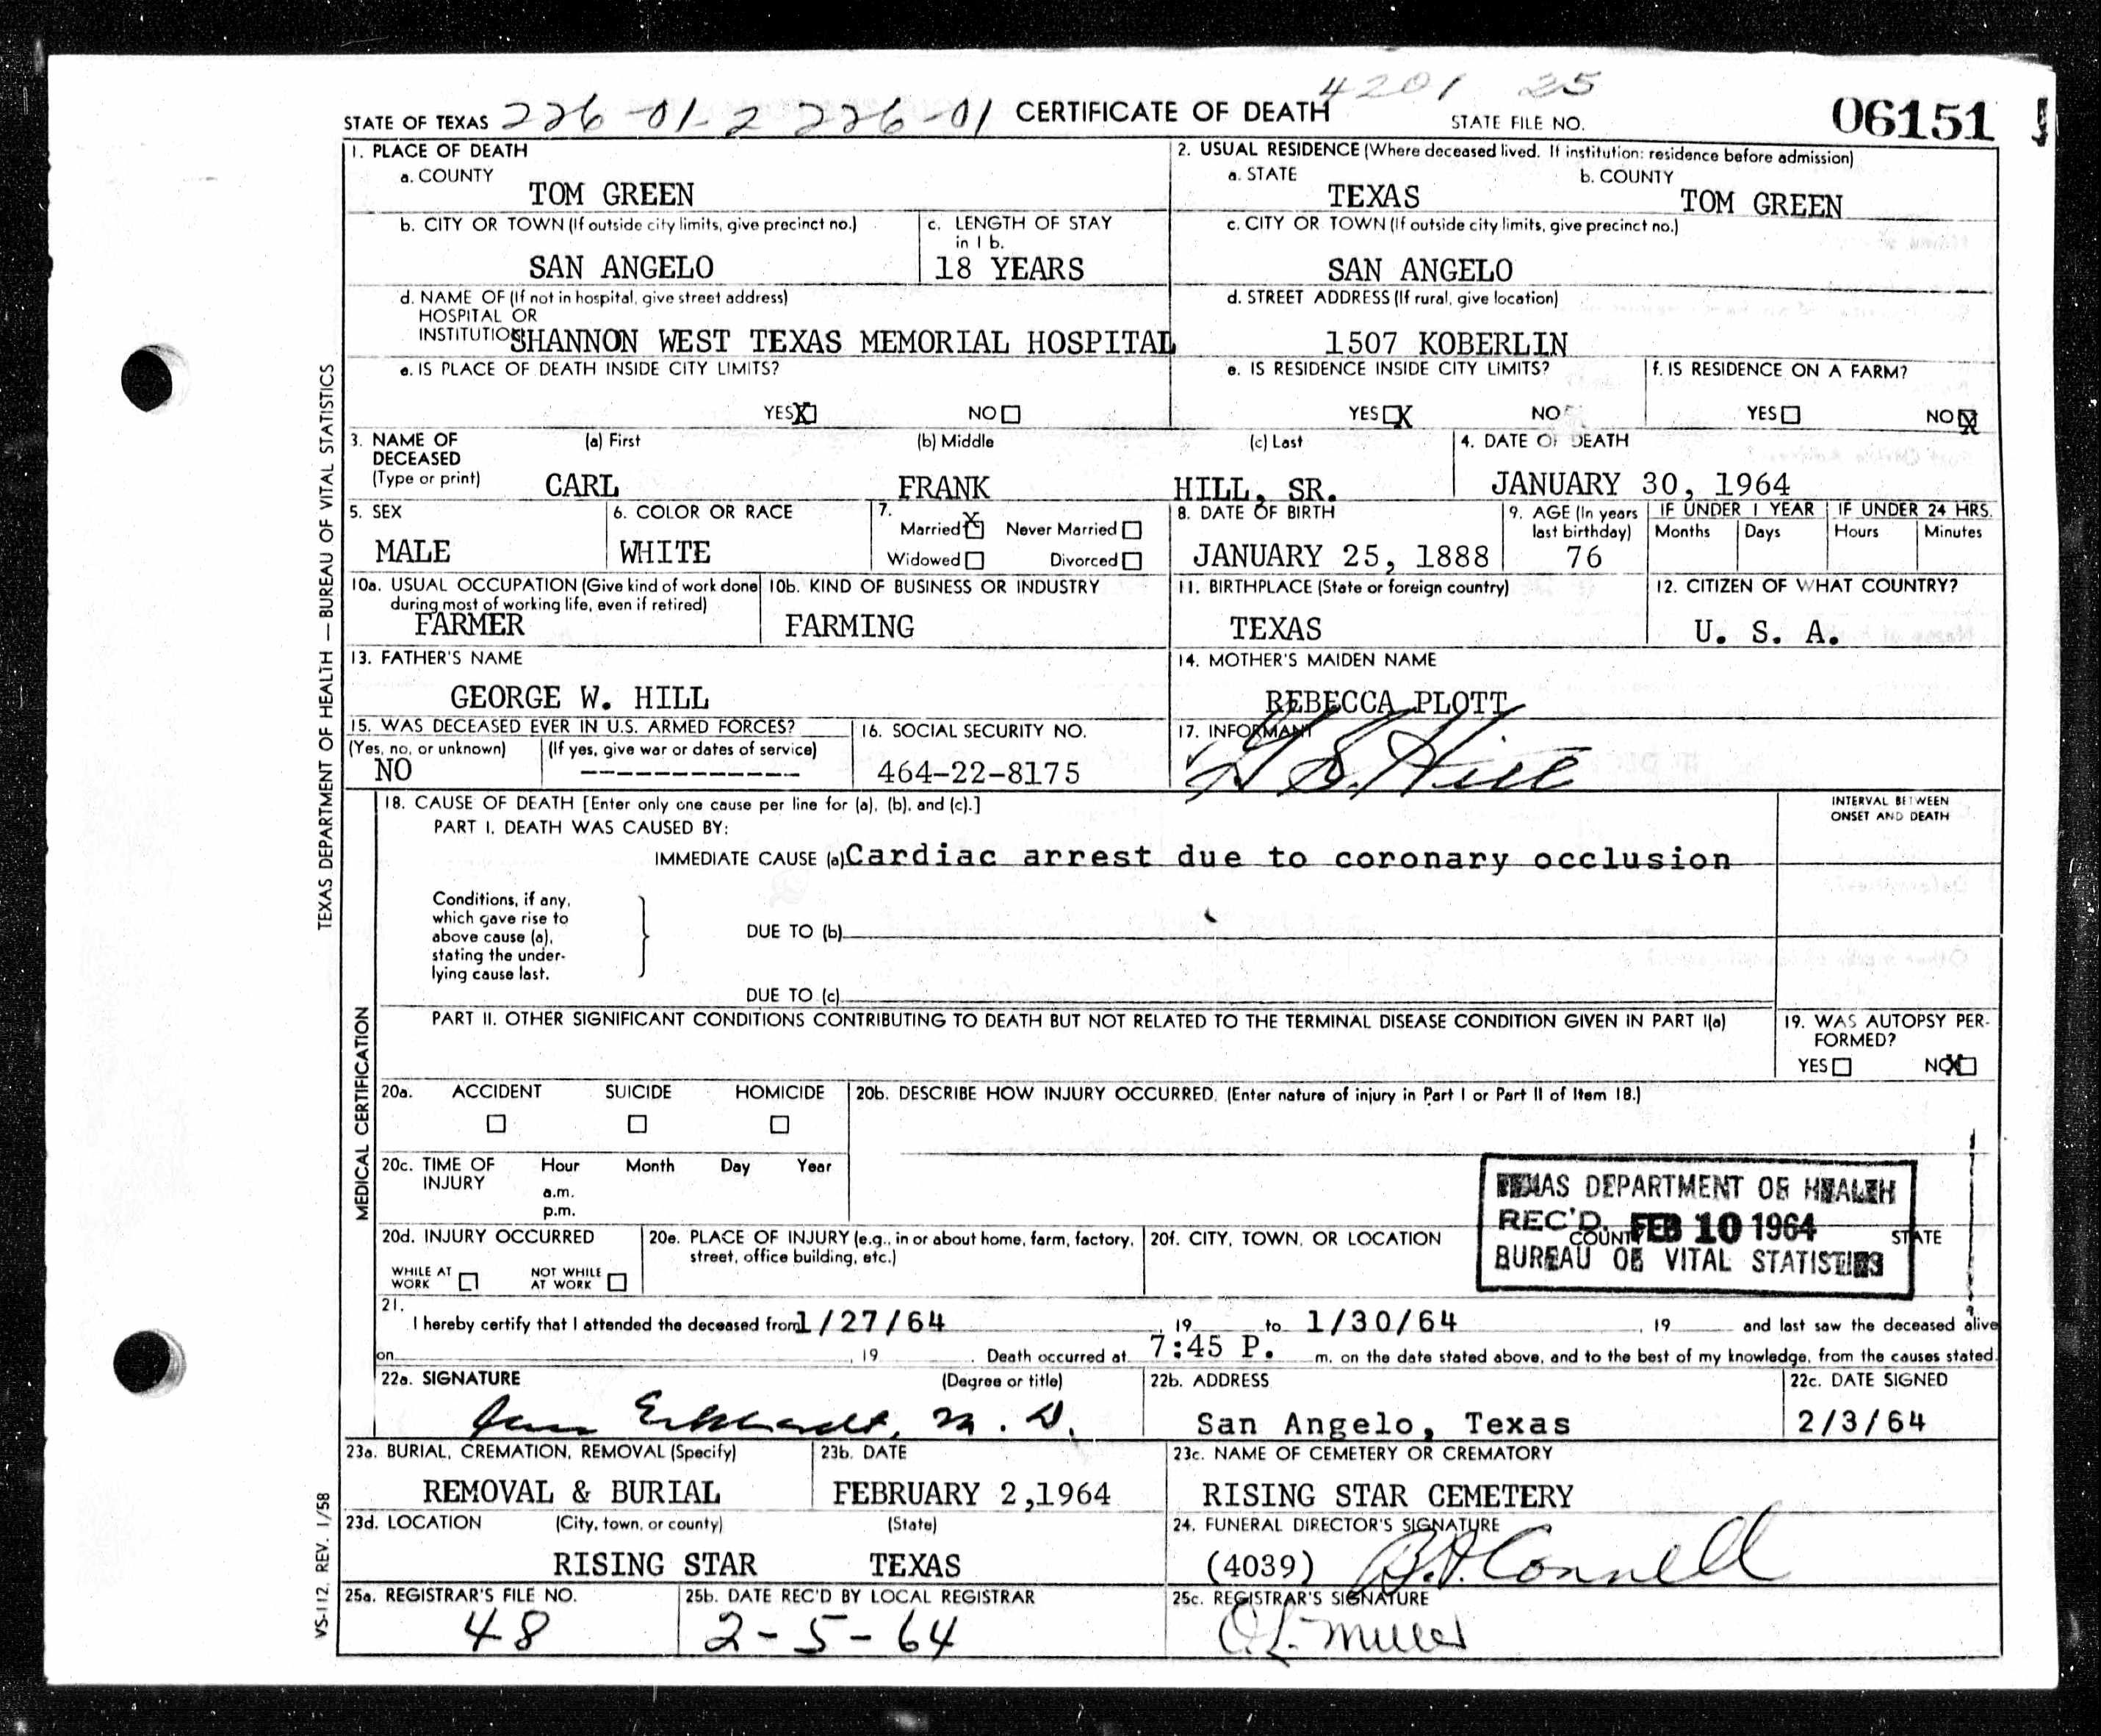 4201 25
STATE OF TEXAS 226-01-2 226-01 CERTIFICATE OF DEATH STATE FILE NO. 06151
1. PLACE OF DEATH
a. COUNTY
TOM GREEN
2. USUAL RESIDENCE (Where deceased lived. If institution: residence before admission)
a. STATE
TEXAS
b. COUNTY
TOM GREEN
b. CITY OR TOWN (If outside city limits, give precinct no.)
SAN ANGELO
c. LENGTH OF STAY
in 1 b.
18 YEARS
c. CITY OR TOWN (If outside city limits, give precinct no.)
SAN ANGELO
d. NAME OF (If not in hospital, give street address)
HOSPITAL OR
INSTITUTION SHANNON WEST TEXAS MEMORIAL HOSPITAL
d. STREET ADDRESS (If rural, give location)
1507 KOBERLIN
e. IS PLACE OF DEATH INSIDE CITY LIMITS?
YES X NO
e. IS RESIDENCE INSIDE CITY LIMITS?
YES X NO
f. IS RESIDENCE ON A FARM?
YES NO X
3. NAME OF
DECEASED
(Type or print)
(a) First
CARL
(b) Middle
FRANK
(c) Last
HILL, SR.
4. DATE OF DEATH
JANUARY 30, 1964
5. SEX
MALE
6. COLOR OR RACE
WHITE
7.
Married X Never Married
Widowed Divorced
8. DATE OF BIRTH
JANUARY 25, 1888
9. AGE (In years
last birthday)
76
IF UNDER 1 YEAR
Months Days
IF UNDER 24 HRS.
Hours Minutes
10a. USUAL OCCUPATION (Give kind of work done
during most of working life, even if retired)
FARMER
10b. KIND OF BUSINESS OR INDUSTRY
FARMING
11. BIRTHPLACE (State or foreign country)
TEXAS
12. CITIZEN OF WHAT COUNTRY?
U. S. A.
13. FATHER'S NAME
GEORGE W. HILL
14. MOTHER'S MAIDEN NAME
REBECCA PLOTT
15. WAS DECEASED EVER IN U.S. ARMED FORCES?
(Yes, no, or unknown)
NO
(If yes, give war or dates of service)
------------
16. SOCIAL SECURITY NO.
464-22-8175
17. INFORMANT
S. Hill
18. CAUSE OF DEATH [Enter only one cause per line for (a), (b), and (c).]
PART I. DEATH WAS CAUSED BY:
IMMEDIATE CAUSE (a) Cardiac arrest due to coronary occlusion
INTERVAL BETWEEN
ONSET AND DEATH
Conditions, if any,
which gave rise to
above cause (a),
stating the under-
lying cause last.
DUE TO (b)
DUE TO (c)
PART II. OTHER SIGNIFICANT CONDITIONS CONTRIBUTING TO DEATH BUT NOT RELATED TO THE TERMINAL DISEASE CONDITION GIVEN IN PART I(a)
19. WAS AUTOPSY PER-
FORMED?
YES NO X
20a. ACCIDENT SUICIDE HOMICIDE
20b. DESCRIBE HOW INJURY OCCURRED. (Enter nature of injury in Part I or Part II of Item 18.)
20c. TIME OF
INJURY
Hour Month Day Year
a.m.
p.m.
TEXAS DEPARTMENT OF HEALTH
REC'D. FEB 10 1964
BUREAU OF VITAL STATISTICS
20d. INJURY OCCURRED
WHILE AT
WORK
NOT WHILE
AT WORK
20e. PLACE OF INJURY (e.g., in or about home, farm, factory,
street, office building, etc.)
20f. CITY, TOWN, OR LOCATION COUNTY STATE
21.
I hereby certify that I attended the deceased from 1/27/64, 19 to 1/30/64, 19 and last saw the deceased alive
on , 19 . Death occurred at 7:45 P. m. on the date stated above, and to the best of my knowledge, from the causes stated.
22a. SIGNATURE (Degree or title)
M.D.
22b. ADDRESS
San Angelo, Texas
22c. DATE SIGNED
2/3/64
23a. BURIAL, CREMATION, REMOVAL (Specify)
REMOVAL & BURIAL
23b. DATE
FEBRUARY 2,1964
23c. NAME OF CEMETERY OR CREMATORY
RISING STAR CEMETERY
23d. LOCATION (City, town, or county) (State)
RISING STAR TEXAS
24. FUNERAL DIRECTOR'S SIGNATURE
(4039) Connell
25a. REGISTRAR'S FILE NO.
48
25b. DATE REC'D BY LOCAL REGISTRAR
2-5-64
25c. REGISTRAR'S SIGNATURE
O.L. Miller
TEXAS DEPARTMENT OF HEALTH — BUREAU OF VITAL STATISTICS
MEDICAL CERTIFICATION
VS-112, REV. 1/58